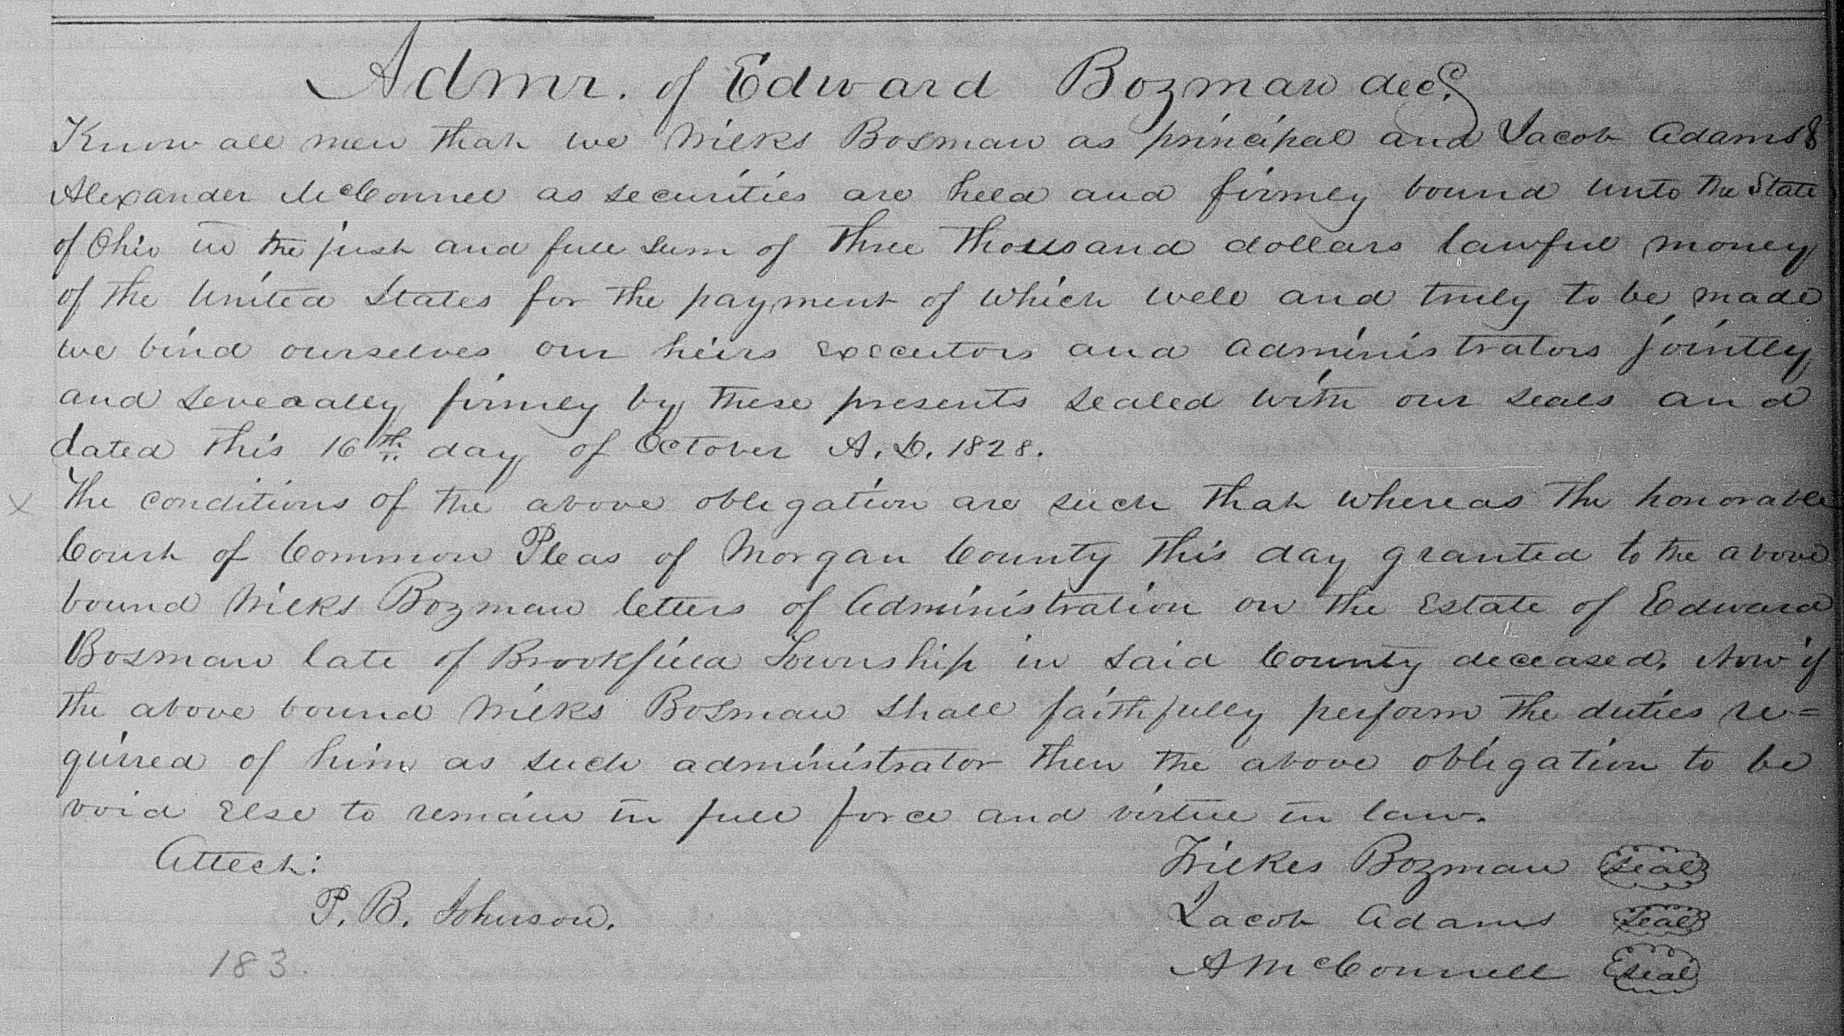 Admr. of Edward Bozman decd.
Know all men that we Wilks Bosman as principal and Jacob Adams &
Alexander McConnel as securities are held and firmly bound unto the State
of Ohio in the just and full sum of three thousand dollars lawful money
of the United States for the payment of which well and truly to be made
we bind ourselves our heirs executors and administrators jointly
and severally firmly by these presents sealed with our seals and
dated this 16th day of October A. D. 1828.
X The conditions of the above obligation are such that whereas the honorable
Court of Common Pleas of Morgan County this day granted to the above
bound Wilks Bozman letters of administration on the Estate of Edward
Bosman late of Brookfield Township in said County deceased. Now if
the above bound Wilks Bosman shall faithfully perform the duties re=
quired of him as such administrator then the above obligation to be
void Else to remain in full force and virtue in law.
Attest: Wilkes Bozman Seal
P. B. Johnson. Jacob Adams Seal
183. A McConnell Seal